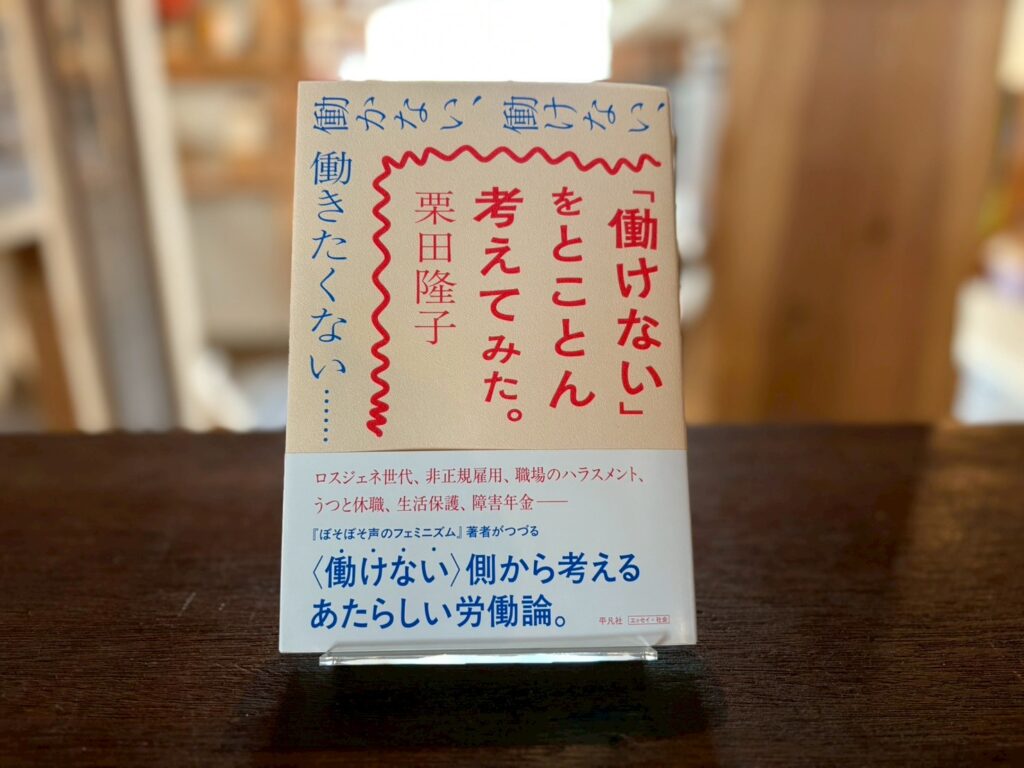 働かない、働けない、
働きたくない……
「働けない」
をとことん
考えてみた。
栗田隆子
ロスジェネ世代、非正規雇用、職場のハラスメント、
うつと休職、生活保護、障害年金——
『ぼそぼそ声のフェミニズム』著者がつづる
〈働けない〉側から考える
あたらしい労働論。
平凡社 エッセイ・社会